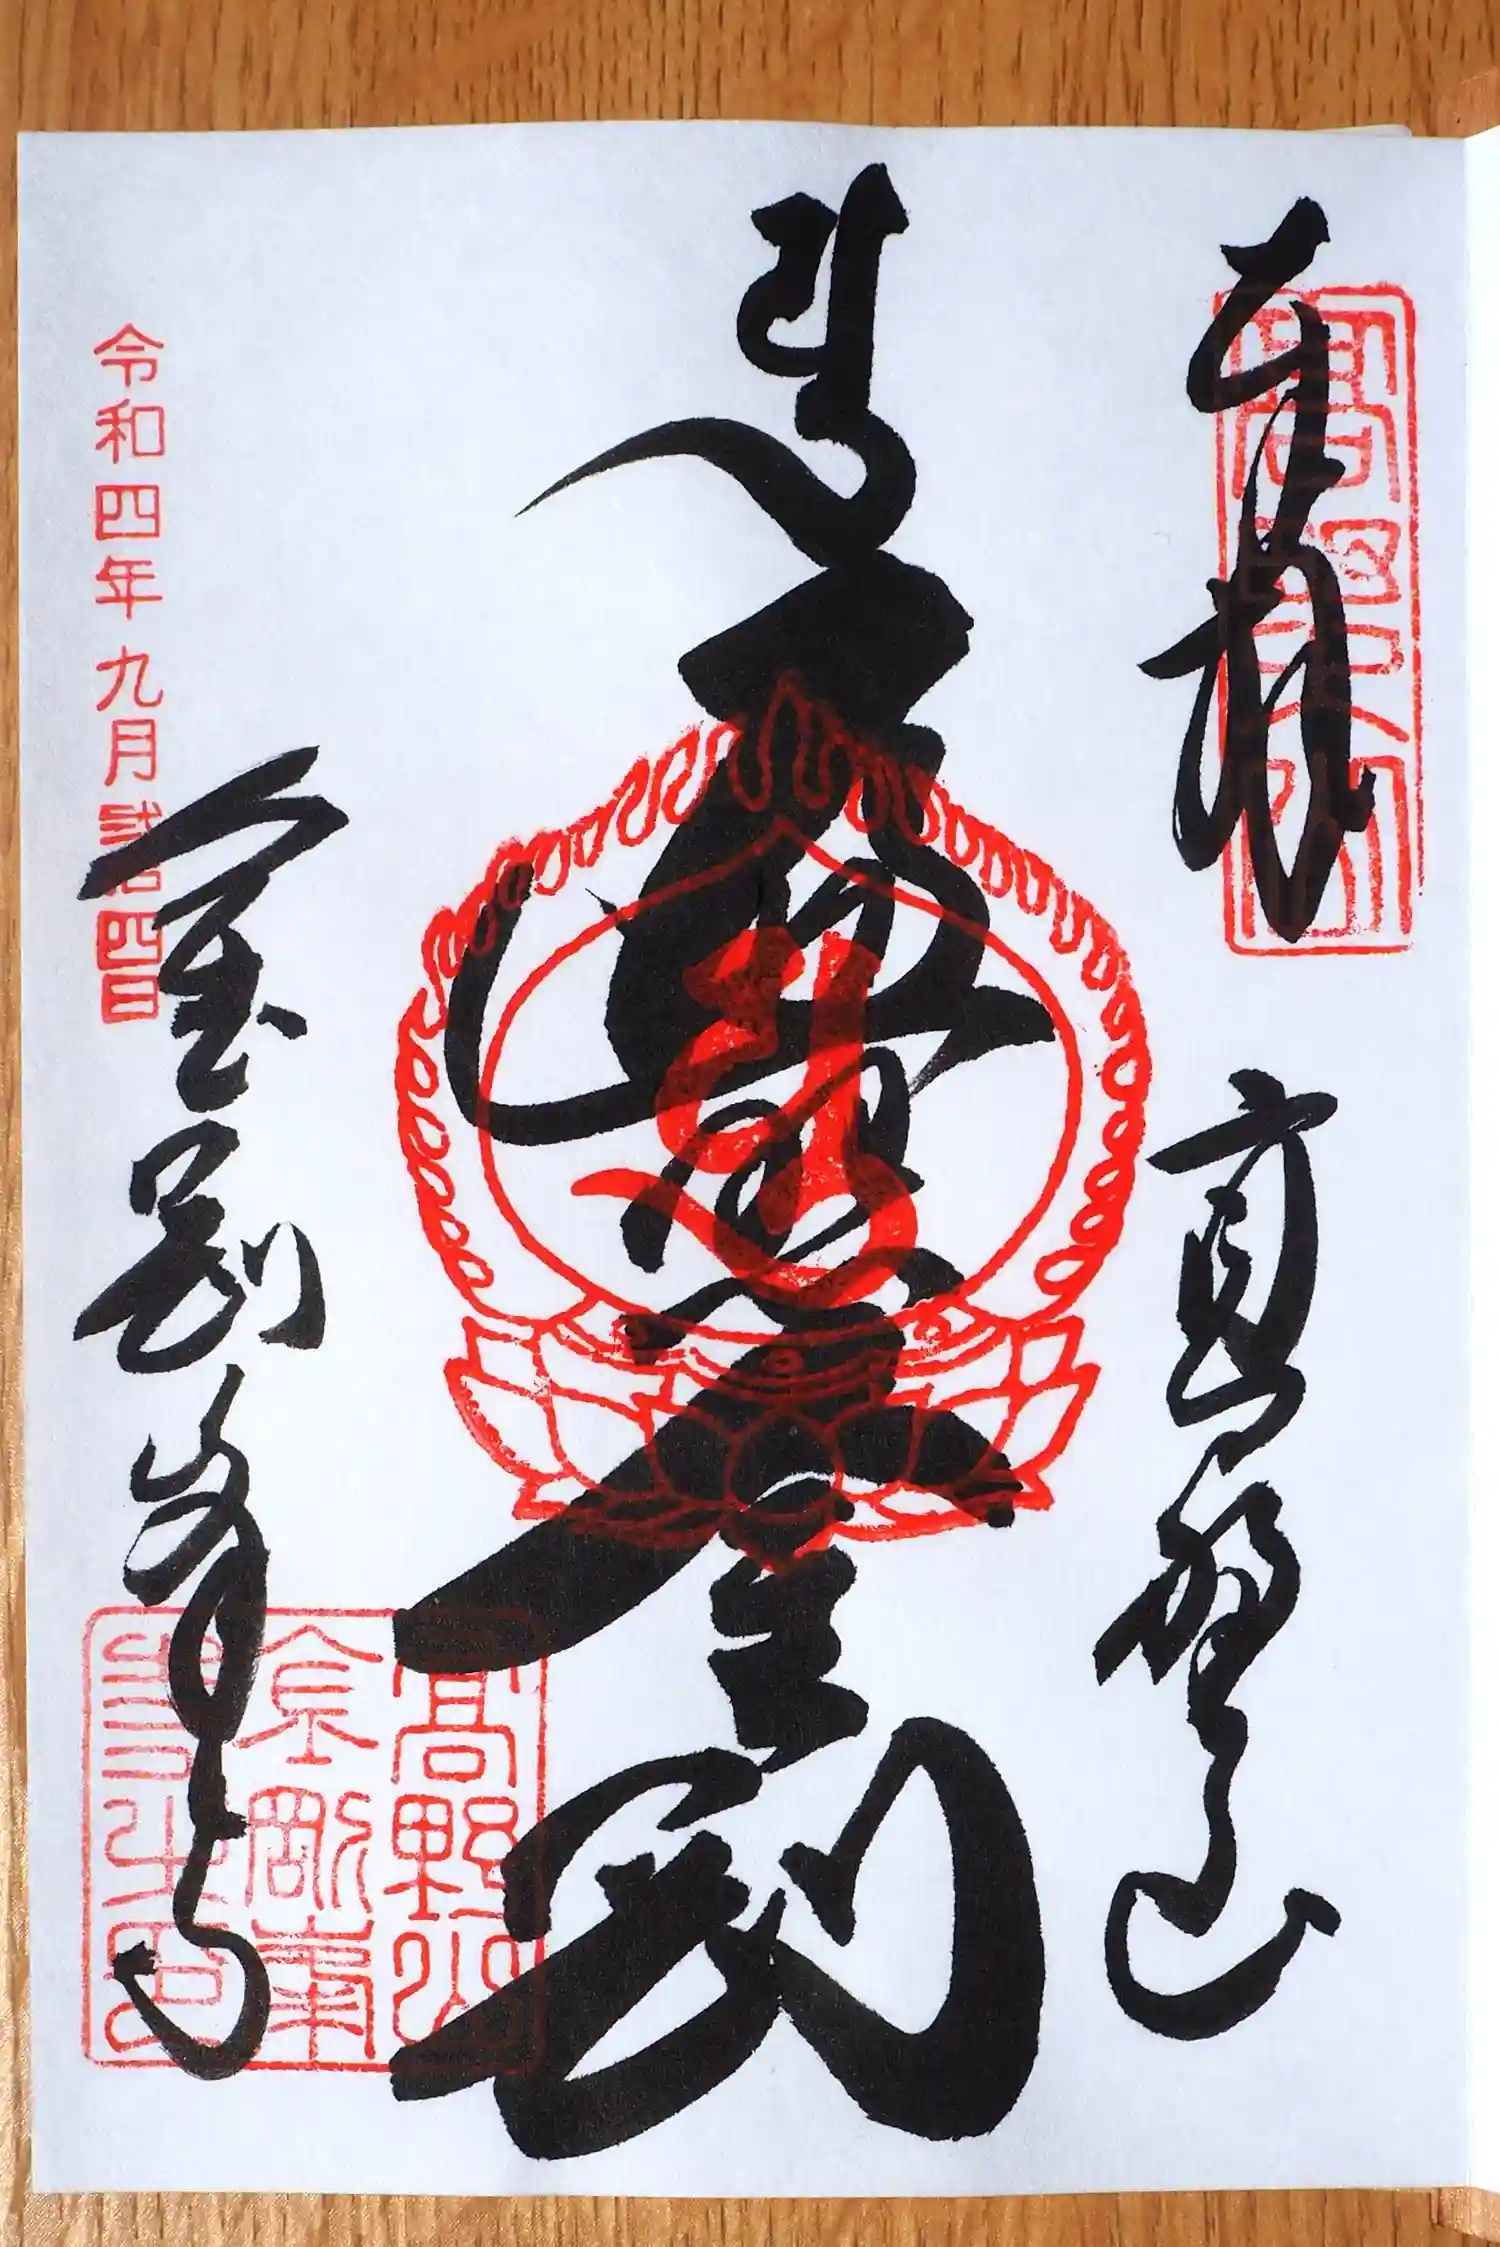 奉拝
高野山
遍照金剛
金剛峯寺
令和四年九月弐拾四日
高野山
金剛峯
寺之印